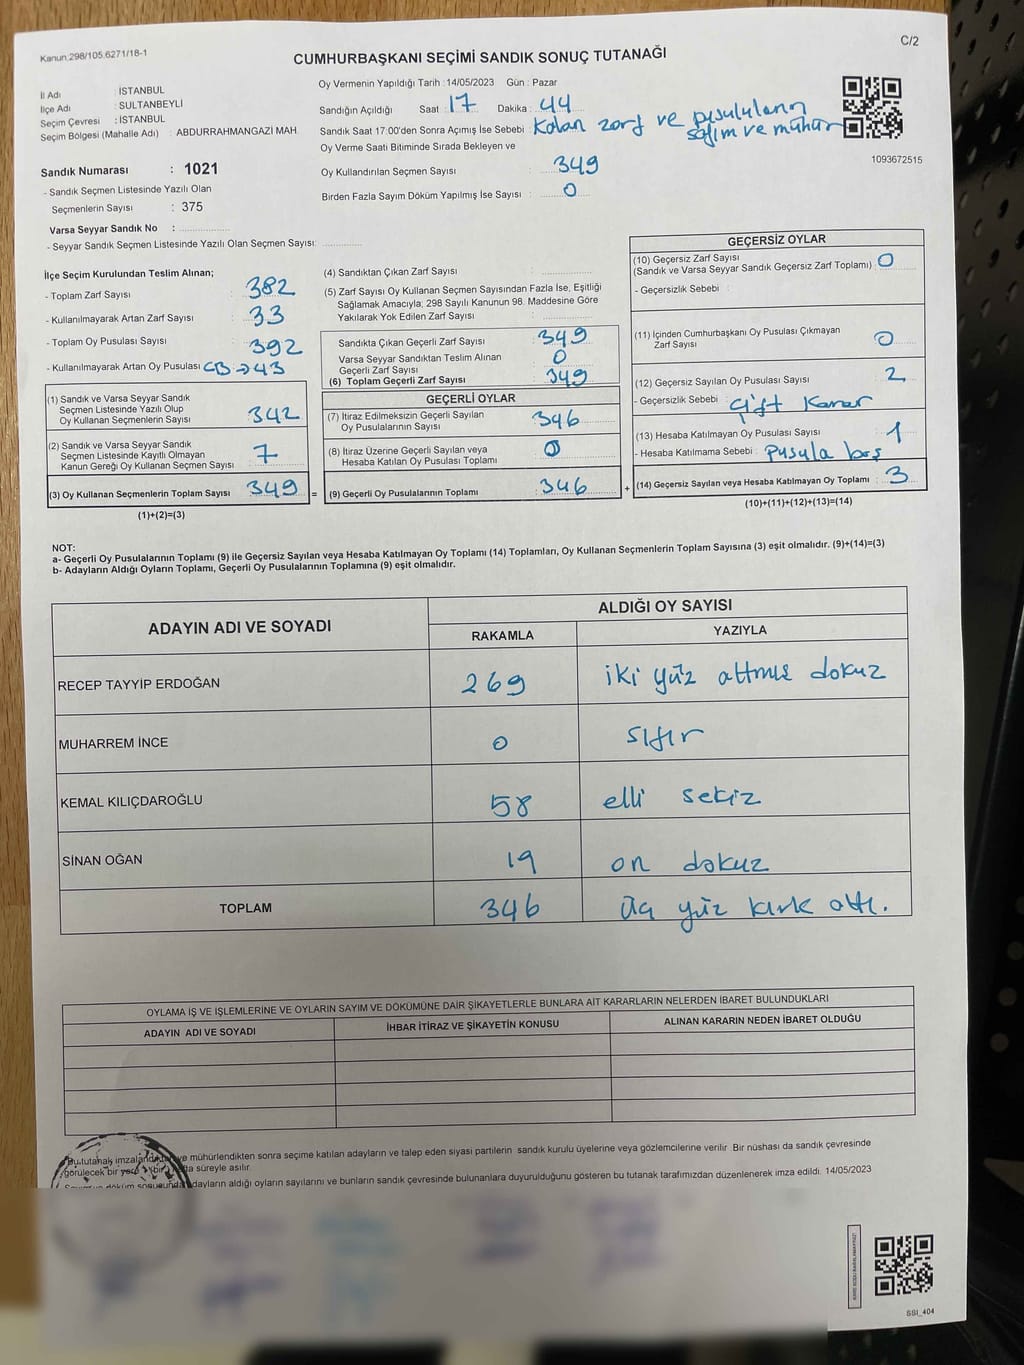 Kanun.298/105.6271/18-1
C/2
CUMHURBAŞKANI SEÇİMİ SANDIK SONUÇ TUTANAĞI
İl Adı : İSTANBUL
İlçe Adı : SULTANBEYLİ
Seçim Çevresi : İSTANBUL
Seçim Bölgesi (Mahalle Adı) : ABDURRAHMANGAZİ MAH.
Sandık Numarası : 1021
- Sandık Seçmen Listesinde Yazılı Olan
Seçmenlerin Sayısı : 375
Varsa Seyyar Sandık No :
- Seyyar Sandık Seçmen Listesinde Yazılı Olan Seçmen Sayısı:
Oy Vermenin Yapıldığı Tarih : 14/05/2023 Gün : Pazar
Sandığın Açıldığı Saat : 17 Dakika : 44
Sandık Saat 17.00'den Sonra Açımış İse Sebebi : Kalan zarf ve pusulaların
sayım ve mühür
Oy Verme Saati Bitiminde Sırada Bekleyen ve
Oy Kullandırılan Seçmen Sayısı : 349
Birden Fazla Sayım Döküm Yapılmış İse Sayısı : 0
1093672515
İlçe Seçim Kurulundan Teslim Alınan;
- Toplam Zarf Sayısı : 382
- Kullanılmayarak Artan Zarf Sayısı : 33
- Toplam Oy Pusulası Sayısı : 392
- Kullanılmayarak Artan Oy Pusulası CB → 43
(1) Sandık ve Varsa Seyyar Sandık
Seçmen Listesinde Yazılı Olup
Oy Kullanan Seçmenlerin Sayısı : 342
(2) Sandık ve Varsa Seyyar Sandık
Seçmen Listesinde Kayıtlı Olmayan
Kanun Gereği Oy Kullanan Seçmen Sayısı : 7
(3) Oy Kullanan Seçmenlerin Toplam Sayısı : 349 =
(1)+(2)=(3)
(4) Sandıktan Çıkan Zarf Sayısı :
(5) Zarf Sayısı Oy Kullanan Seçmen Sayısından Fazla İse, Eşitliği
Sağlamak Amacıyla; 298 Sayılı Kanunun 98. Maddesine Göre
Yakılarak Yok Edilen Zarf Sayısı :
Sandıkta Çıkan Geçerli Zarf Sayısı : 349
Varsa Seyyar Sandıktan Teslim Alınan
Geçerli Zarf Sayısı : 0
(6) Toplam Geçerli Zarf Sayısı : 349
GEÇERLİ OYLAR
(7) İtiraz Edilmeksizin Geçerli Sayılan
Oy Pusulalarının Sayısı : 346
(8) İtiraz Üzerine Geçerli Sayılan veya
Hesaba Katılan Oy Pusulası Toplamı : 0
(9) Geçerli Oy Pusulalarının Toplamı : 346 +
GEÇERSİZ OYLAR
(10) Geçersiz Zarf Sayısı
(Sandık ve Varsa Seyyar Sandık Geçersiz Zarf Toplamı) : 0
- Geçersizlik Sebebi :
(11) İçinden Cumhurbaşkanı Oy Pusulası Çıkmayan
Zarf Sayısı : 0
(12) Geçersiz Sayılan Oy Pusulası Sayısı : 2
- Geçersizlik Sebebi : Çift Karar
(13) Hesaba Katılmayan Oy Pusulası Sayısı : 1
- Hesaba Katılmama Sebebi : Pusula boş
(14) Geçersiz Sayılan veya Hesaba Katılmayan Oy Toplamı : 3
(10)+(11)+(12)+(13)=(14)
NOT:
a- Geçerli Oy Pusulalarının Toplamı (9) ile Geçersiz Sayılan veya Hesaba Katılmayan Oy Toplamı (14) Toplamları, Oy Kullanan Seçmenlerin Toplam Sayısına (3) eşit olmalıdır. (9)+(14)=(3)
b- Adayların Aldığı Oyların Toplamı, Geçerli Oy Pusulalarının Toplamına (9) eşit olmalıdır.
ADAYIN ADI VE SOYADI
ALDIĞI OY SAYISI
RAKAMLA YAZIYLA
RECEP TAYYİP ERDOĞAN 269 iki yüz altmış dokuz
MUHARREM İNCE 0 sıfır
KEMAL KILIÇDAROĞLU 58 elli sekiz
SİNAN OĞAN 19 on dokuz
TOPLAM 346 üç yüz kırk altı.
OYLAMA İŞ VE İŞLEMLERİNE VE OYLARIN SAYIM VE DÖKÜMÜNE DAİR ŞİKAYETLERLE BUNLARA AİT KARARLARIN NELERDEN İBARET BULUNDUKLARI
ADAYIN ADI VE SOYADI İHBAR İTİRAZ VE ŞİKAYETİN KONUSU ALINAN KARARIN NEDEN İBARET OLDUĞU
Bu tutanak ve mühürlendikten sonra seçime katılan adayların ve talep eden siyasi partilerin sandık kurulu üyelerine veya gözlemcilerine verilir Bir nüshası da sandık çevresinde
görülecek bir süreyle asılır.
adayların aldığı oyların sayılarını ve bunların sandık çevresinde bulunanlara duyurulduğunu gösteren bu tutanak tarafımızdan düzenlenerek imza edildi. 14/05/2023
SSI_404